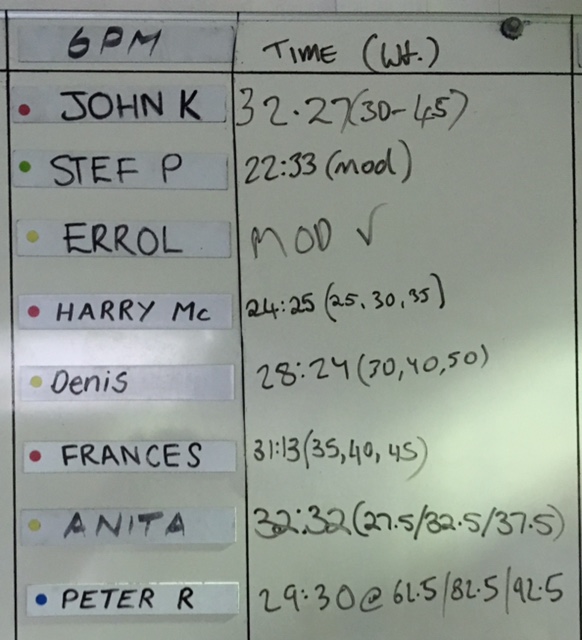 6PM TIME (Wt.)
JOHN K 32.27 (30-45)
STEF P 22:33 (mod)
ERROL MOD √
HARRY Mc 24:25 (25, 30, 35)
Denis 28:24 (30,40,50)
FRANCES 31:13 (35,40, 45)
ANITA 32:32 (27.5/32.5/37.5)
PETER R 29:30 @ 62.5/82.5/92.5